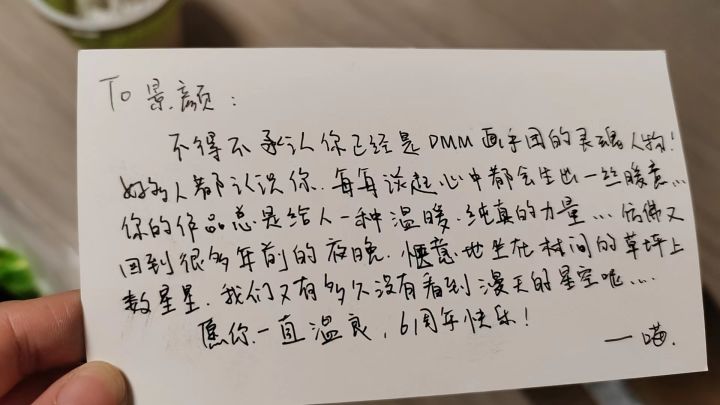 To 景颜：
不得不承认你已经是DMM画手团的灵魂人物！
好多人都认识你.每每谈起心中都会生出一丝暖意…
你的作品总是给人一种温暖.纯真的力量…仿佛又
回到很多年前的夜晚.惬意地坐在村间的草坪上
数星星.我们又有多久没有看到漫天的星空呢…
愿你一直温良，6周年快乐！
—喵.